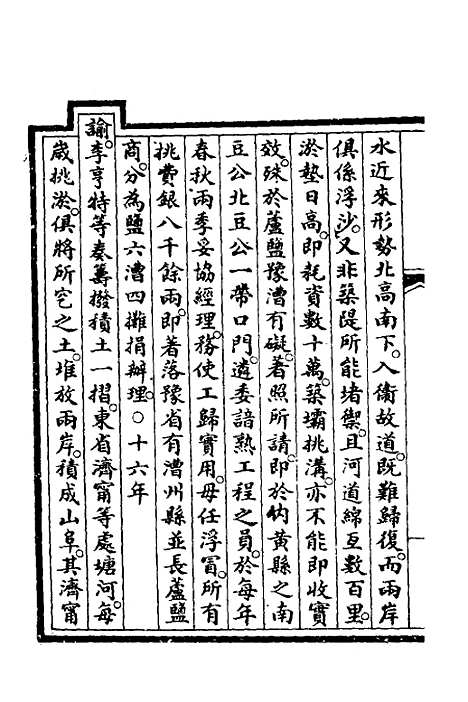 水近來形勢北高南下。入衞故道。既難歸復。而兩岸
俱係浮沙。又非築隄所能堵禦。且河道綿亙數百里。
淤墊日高。即耗資數十萬。築壩挑溝。亦不能即收實
效。殊於蘆鹽豫漕有礙。著照所請。即於內黃縣之南
豆公北豆公一帶口門。遴委諳熟工程之員。於每年
春秋兩季妥協經理。務使工歸實用。毋任浮冒。所有
挑費銀八千餘兩。即著落豫省有漕州縣並長蘆鹽
商。分為鹽六漕四攤捐辦理。○十六年
諭。李亨特等奏籌撥積土一摺。東省濟甯等處塘河。每
歲挑淤。俱將所挖之土。堆放兩岸。積成山阜。其濟甯